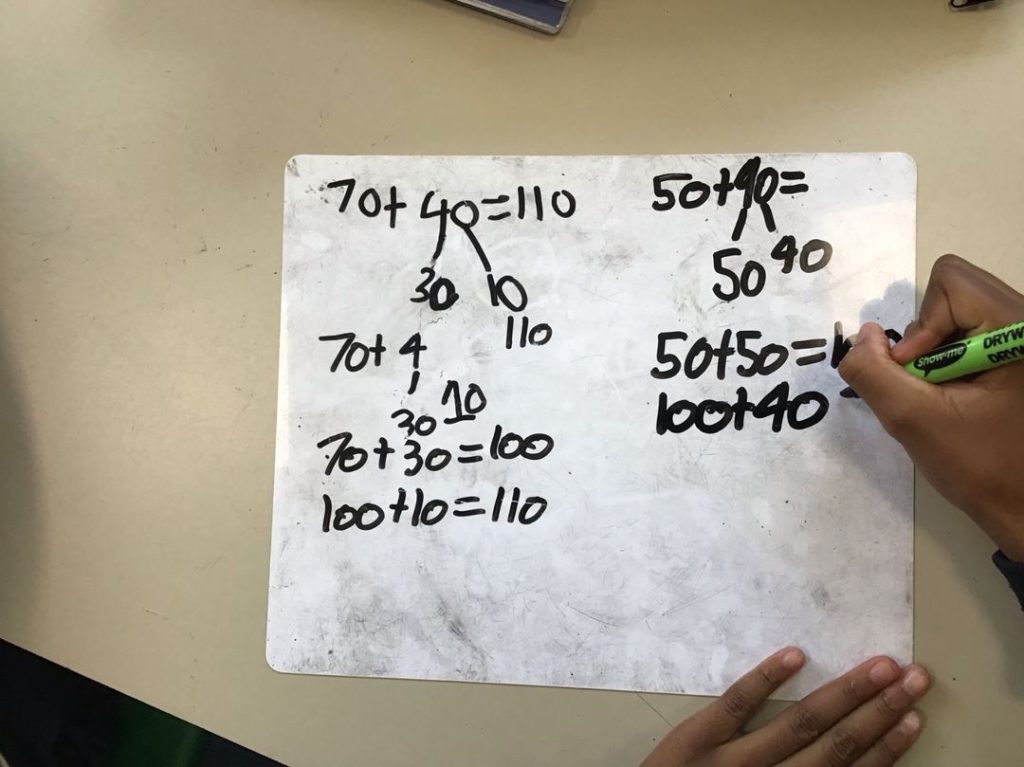 70+ 40=110
30 10
110
70+ 4
30 10
70+30=100
100+10=110
50+90=
50 40
50+50=
100+40 =
show-me
DRYW
DRYW